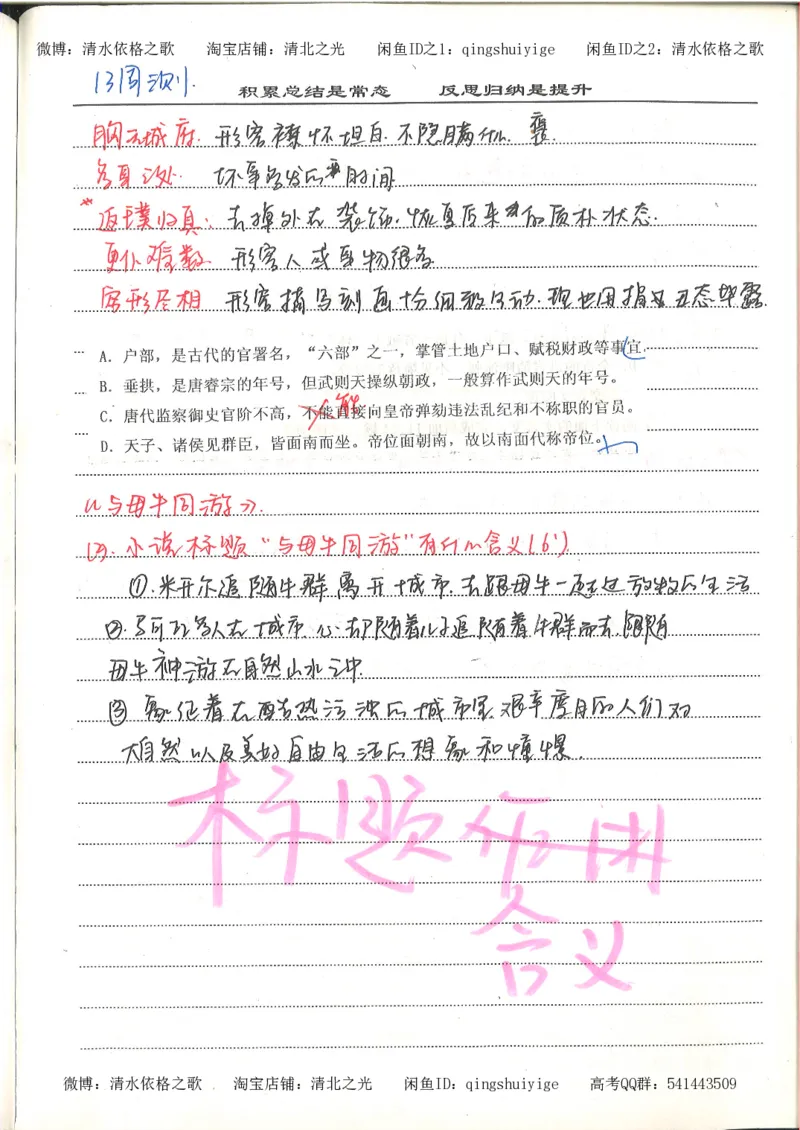 微博：清水依格之歌 淘宝店铺：清北之光 闲鱼ID之1：qingshuiyige 闲鱼ID之2：清水依格之歌
13周测1.
积累总结是常态 反思归纳是提升
胸无城府. 形容襟怀坦白.不隐瞒什么. 褒
东窗 坏事 时间
返璞归真：去掉外在装饰.恢复原来的质朴状态.
更仆难数. 形容人或事物很多
穷形尽相 形容描写刻画十分细致生动.现也用指丑态毕露.
A．户部，是古代的官署名，“六部”之一，掌管土地户口、赋税财政等事宜.
B．垂拱，是唐睿宗的年号，但武则天操纵朝政，一般算作武则天的年号。
C．唐代监察御史官阶不高，不能直接向皇帝弹劾违法乱纪和不称职的官员。
能
D．天子、诸侯见群臣，皆面南而坐。帝位面朝南，故以南面代称帝位。
《与母牛同游》.
小说标题“与母牛同游”有什么含义(6')
①.米开尔追随牛群离开城市.去跟母牛一起过放牧的生活
②.马可瓦多人在城市.心却随着儿子追随着牛群而去.跟随
母牛神游在自然山水之中.
③象征着在酷热污浊的城市里.艰辛度日的人们对
大自然以及美好自由生活的想象和憧憬.
标题作用
含义
微博：清水依格之歌 淘宝店铺：清北之光 闲鱼ID：qingshuiyige 高考QQ群：541443509